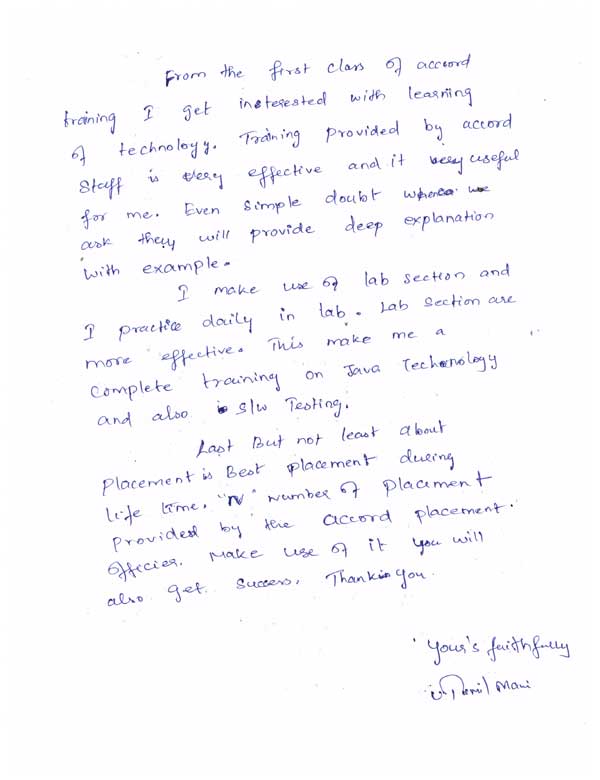 From the first class of accord
training I get insterested with learning
of technology. Training provided by accord
Staff is very effective and it very useful
for me. Even simple doubt whence we
ask they will provide deep explanation
with example.
I make use of lab section and
I practice daily in lab. Lab Section are
more effective. This make me a
Complete training on Java Techonology
and also S/w Testing.
Last But not least about
Placement is Best placement during
life time. "N" number of placement
Provided by the accord placement.
Officier. Make use of it you will
also get success. Thank you.
Your's faithfully
Tamil Mani